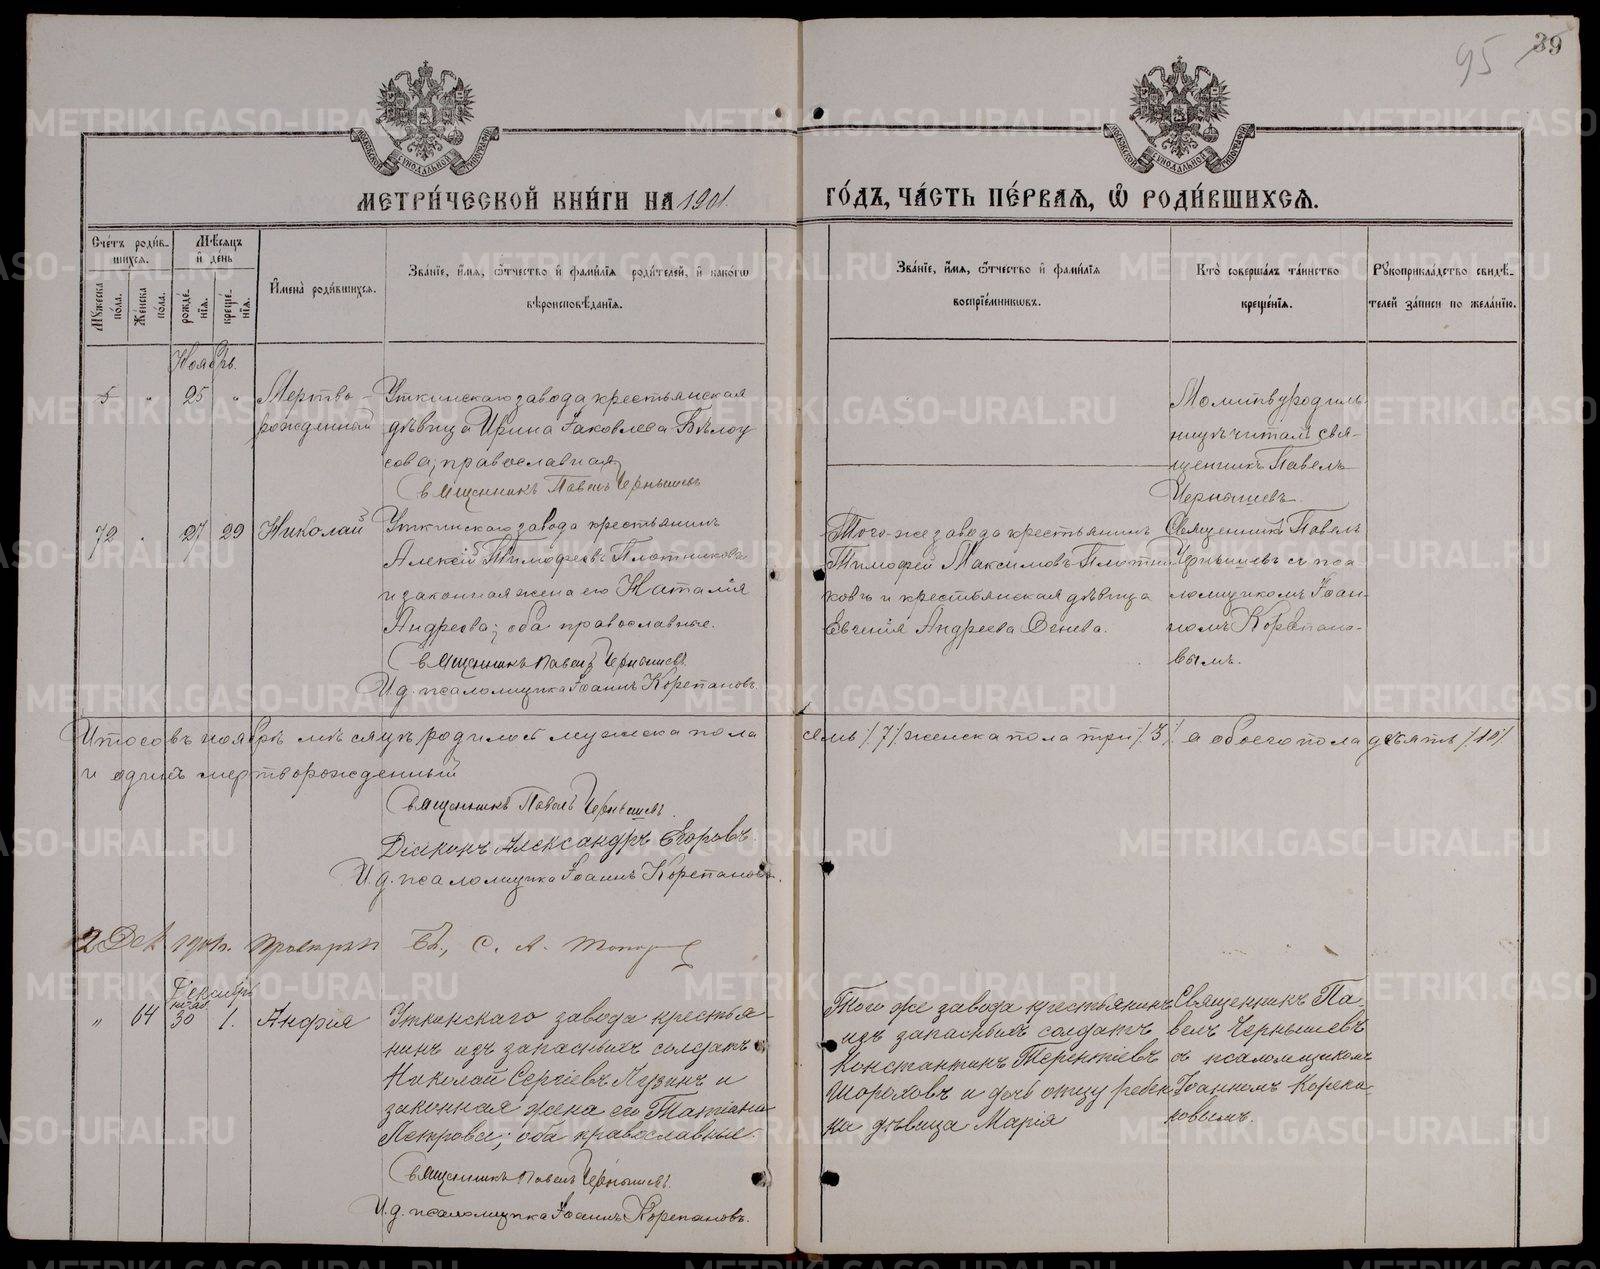 95 39
МЕТРИ́ЧЕСКОЙ КНИ́ГИ НА 1901 ГО́ДЪ, ЧА́СТЬ ПЕ́РВАѦ, Ѽ РОДИ́ВШИХСѦ.
Сче́тъ роди́в-
шихся.
Мѣ́сяцъ
и́ де́нь
Му́жеска по́ла.
Же́нска по́ла.
рожде́-
нїя.
креще́-
нїя.
И҆мена̀ роди́вшихся.
Зва́нїе, и҆́мя, ѻ҆́тчество и҆ фами́лїя роди́телей, и҆ како́гѡ
вѣроисповѣ́данїя.
Зва́нїе, и҆́мя, ѻ҆́тчество и҆ фами́лїя
воспрїе́мникѡвъ.
Кто̀ соверша́лъ та́инство
креще́нїя.
Рꙋкоприкла́дство свидѣ́-
телей за́писи по жела́нїю.
Ноябрь.
5 " 25 " Мертво-
рожденный
Уткинскаго завода крестьянская
дѣвица Ирина Іаковлева Бѣлоу
сова; православная
Священникъ Павелъ Чернышевъ
Молитву родиль-
ницѣ читалъ свя-
щенникъ Павелъ
Чернышевъ.
72 " 27 29 Николай
Уткинскаго завода крестьянинъ
Алексій Тимофеевъ Плотниковъ
и законная жена его Наталія
Андреева; оба православные.
Священникъ Павелъ Чернышевъ
И. д. псаломщика Іоаннъ Корепановъ.
Того-же завода крестьянинъ
Тимофей Максимовъ Плотни
ковъ и крестьянская дѣвица
Евгенія Андреева Огнева.
Священникъ Павелъ
Чернышевъ съ пса
ломщикомъ Іоан-
номъ Корепано-
вымъ.
Итого въ ноябрѣ мѣсяцѣ родилось мужска пола семь /7/ женска пола три /3/ а обоего пола десять /10/
и одинъ мертворожденный
Священникъ Павелъ Чернышевъ.
Діаконъ Александръ Егоровъ.
И. д. псаломщика Іоаннъ Корепановъ.
2 Дек 1901 г. С. А.
Декабрь
нояб
" 64 30 1. Анфия
Уткинскаго завода крестья-
нинъ изъ запасныхъ солдатъ
Николай Сергіевъ Пузинъ и
законная жена его Татіана
Петрова; оба православные.
Священникъ Павелъ Чернышевъ.
И. д. псаломщика Іоаннъ Корепановъ.
Того же завода крестьянинъ
изъ запасныхъ солдатъ
Константинъ Терентіевъ
Шороховъ и дочь отцу ребен
ка дѣвица Марія
Священникъ Па-
велъ Чернышевъ
съ псаломщикомъ
Іоанномъ Корепа-
новымъ.